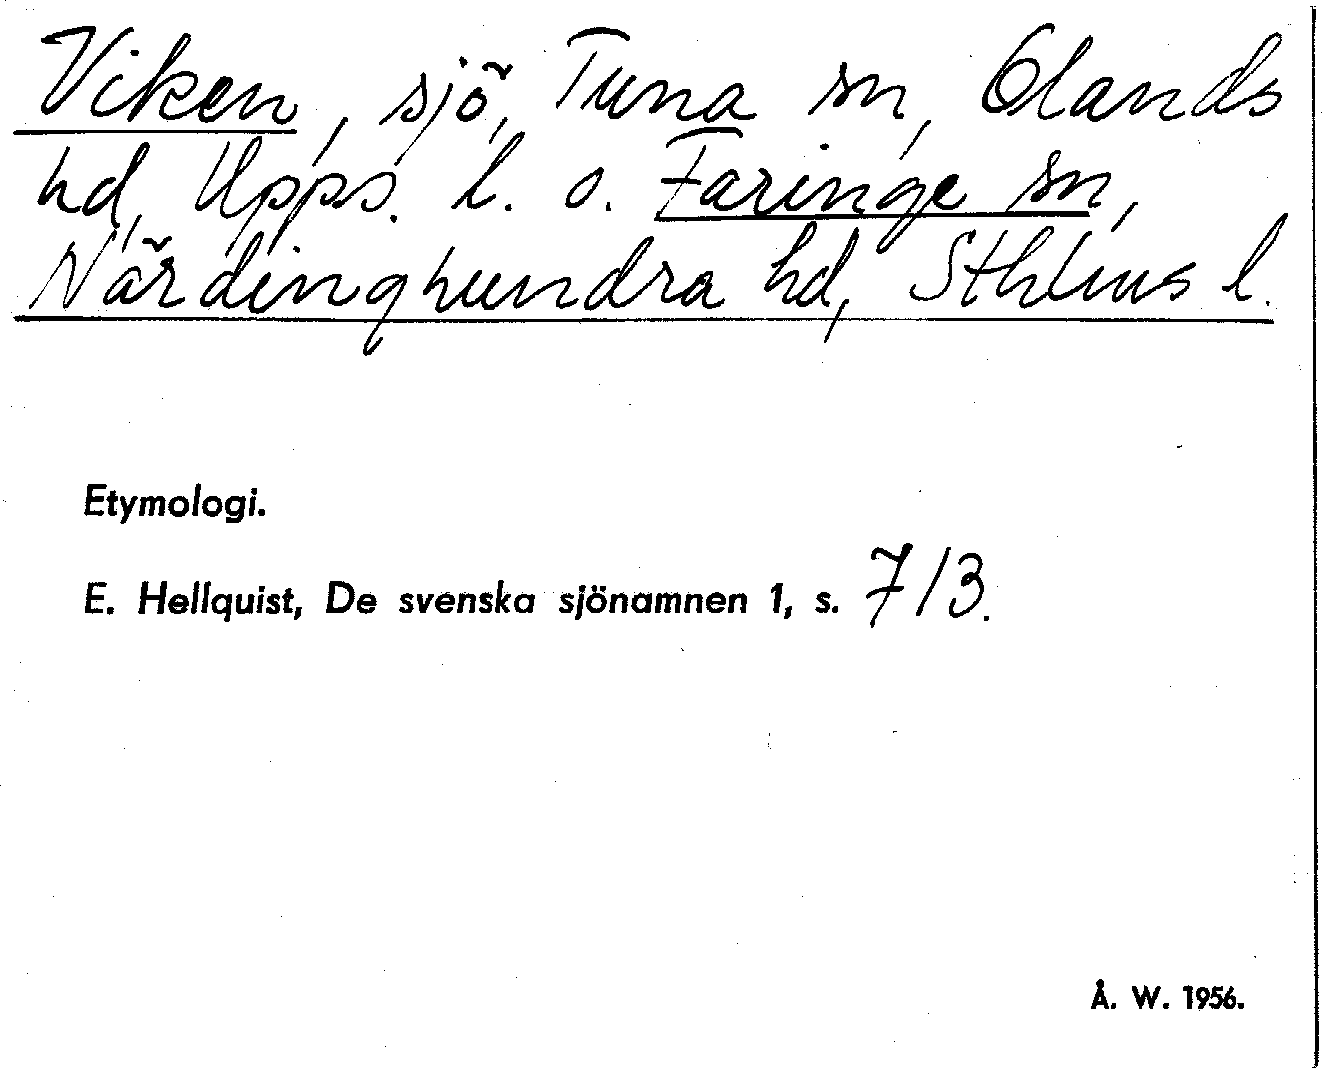 Viken, sjö, Tuna sn, Olands
hd, Upps. l. o. Faringe sn,
Närdinghundra hd, Sthlms l.
Etymologi.
E. Hellquist, De svenska sjönamnen 1, s. 713.
Å. W. 1956.